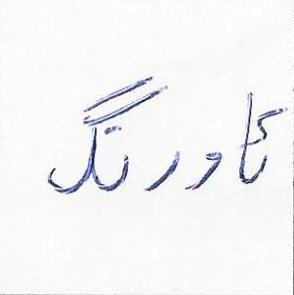 ٹاورنگ